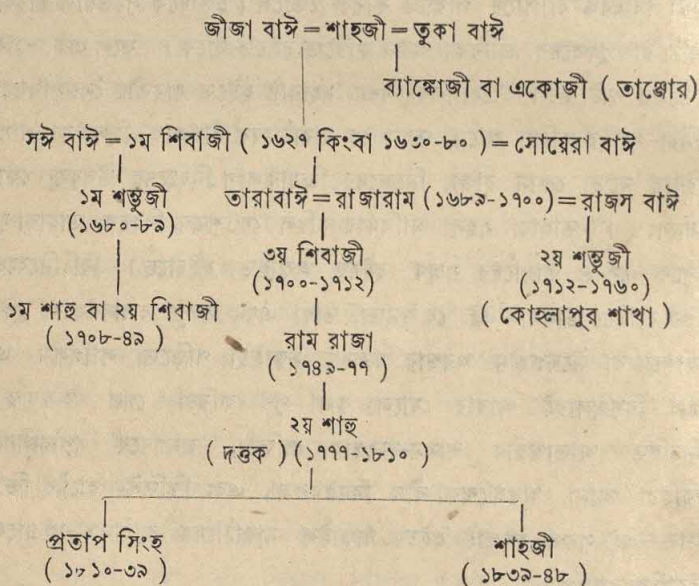 জীজা বাঈ = শাহজী = তুকা বাঈ
ব্যাঙ্কোজী বা একোজী ( তাঞ্জোর )
সঈ বাঈ = ১ম শিবাজী ( ১৬২৭ কিংবা ১৬৩০-৮০ ) = সোয়েরা বাঈ
১ম শম্ভুজী
(১৬৮০-৮৯)
তারাবাঈ = রাজারাম (১৬৮৯-১৭০০) = রাজস বাঈ
৩য় শিবাজী
(১৭০০-১৭১২)
২য় শম্ভুজী
(১৭১২-১৭৬০)
( কোহ্লাপুর শাখা )
১ম শাহু বা ২য় শিবাজী
( ১৭০৮-৪৯ )
রাম রাজা
( ১৭৪৯-৭৭ )
২য় শাহু
( দত্তক ) ( ১৭৭৭-১৮১০ )
প্রতাপ সিংহ
( ১৮১০-৩৯ )
শাহজী
( ১৮৩৯-৪৮ )